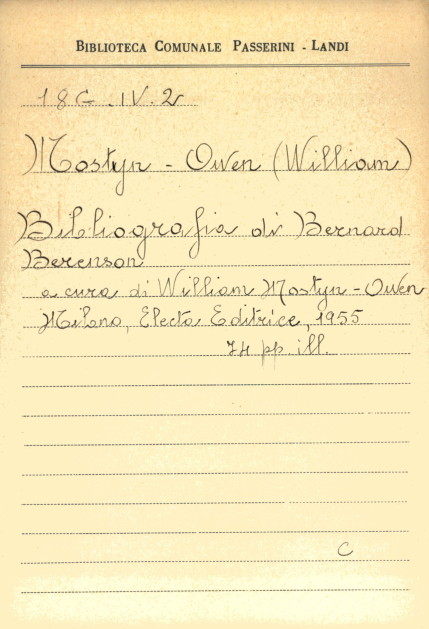 BIBLIOTECA COMUNALE PASSERINI - LANDI
18G.IV.2
Mostyn - Owen (William)
Bibliografia di Bernard
Berenson
a cura di William Mostyn - Owen
Milano, Electa Editrice, 1955
74 pp. ill.
C